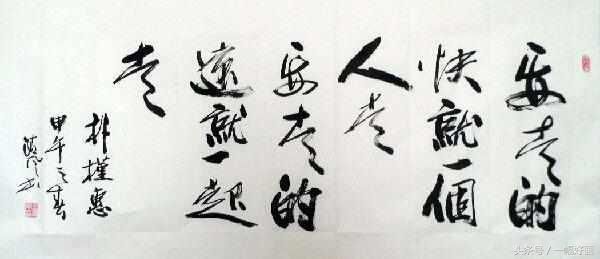 要走的
快就一個
人走
要走的
遠就一起
走
朴槿惠
甲午之春
头条号 / 一幅好画